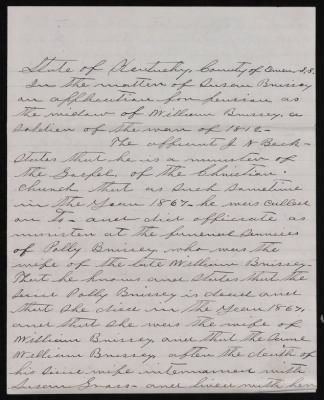 State of Kentucky, County of Owen S.S.
In the matter of Susan Brissey
an application for pension as
the widow of William Brissey, a
soldier of the war of 1812 -
The affiant J N Beck -
states that he is a minister of
the Gospel, of the Christian
Church that as such sometime
in the year 1867 - he was called
on to - and did officiate as
minister at the funeral services
of Polly Brissey, who was the
wife of the late William Brissey -
That he knows and states that the
said Polly Brissey is dead and
that she died in the year 1867,
and that she was the wife of
William Brissey, and that the same
William Brissey after the death of
his said wife intermarried with
Susan - and lived with her